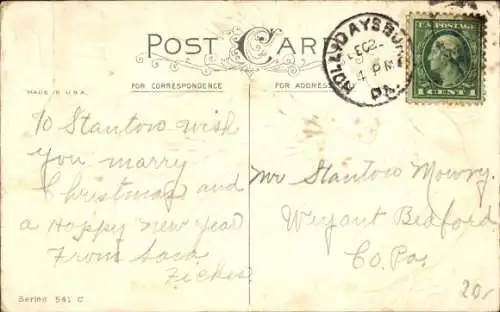 POST CARD
FOR CORRESPONDENCE
FOR ADDRESS
MADE IN U.S.A.
HOLLIDAYSBURG
DEC 2
4 PM
PA.
U.S. POSTAGE
1 CENT 1
To Stantow wish
you marry
Christmas and
a Happy New Year
From Sara
Fickes
Mr Stantow Mowry.
Weyant Bedford
Co. Pa.
20.
Series 541 C